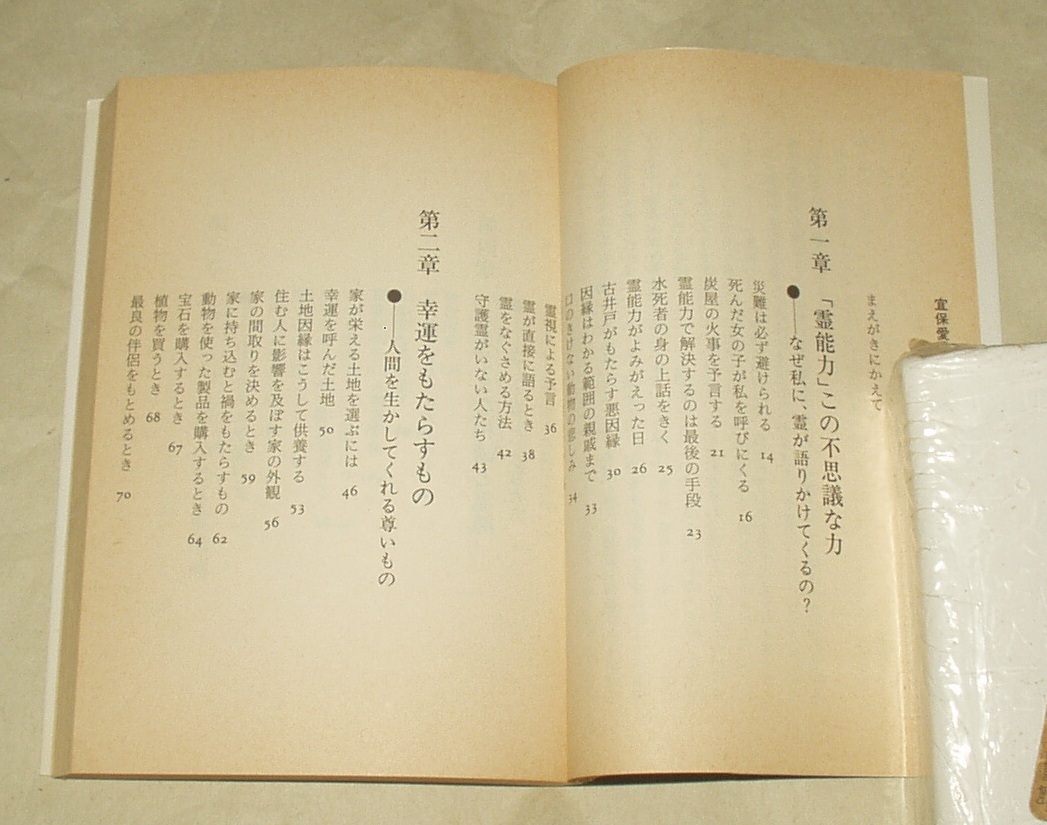 宜保愛
まえがきにかえて
第一章 「霊能力」この不思議な力
●──なぜ私に、霊が語りかけてくるの？
災難は必ず避けられる 14
死んだ女の子が私を呼びにくる 16
炭屋の火事を予言する 21
霊能力で解決するのは最後の手段 23
水死者の身の上話をきく 25
霊能力がよみがえった日 26
古井戸がもたらす悪因縁 30
因縁はわかる範囲の親戚まで 33
口のきけない動物の悲しみ 34
霊視による予言 36
霊が直接に語るとき 38
霊をなぐさめる方法 42
守護霊がいない人たち 43
第二章 幸運をもたらすもの
●──人間を生かしてくれる尊いもの
家が栄える土地を選ぶには 46
幸運を呼んだ土地 50
土地因縁はこうして供養する 53
住む人に影響を及ぼす家の外観 56
家の間取りを決めるとき 59
家に持ち込むと禍をもたらすもの 62
動物を使った製品を購入するとき 64
宝石を購入するとき 67
植物を買うとき 68
最良の伴侶をもとめるとき 70